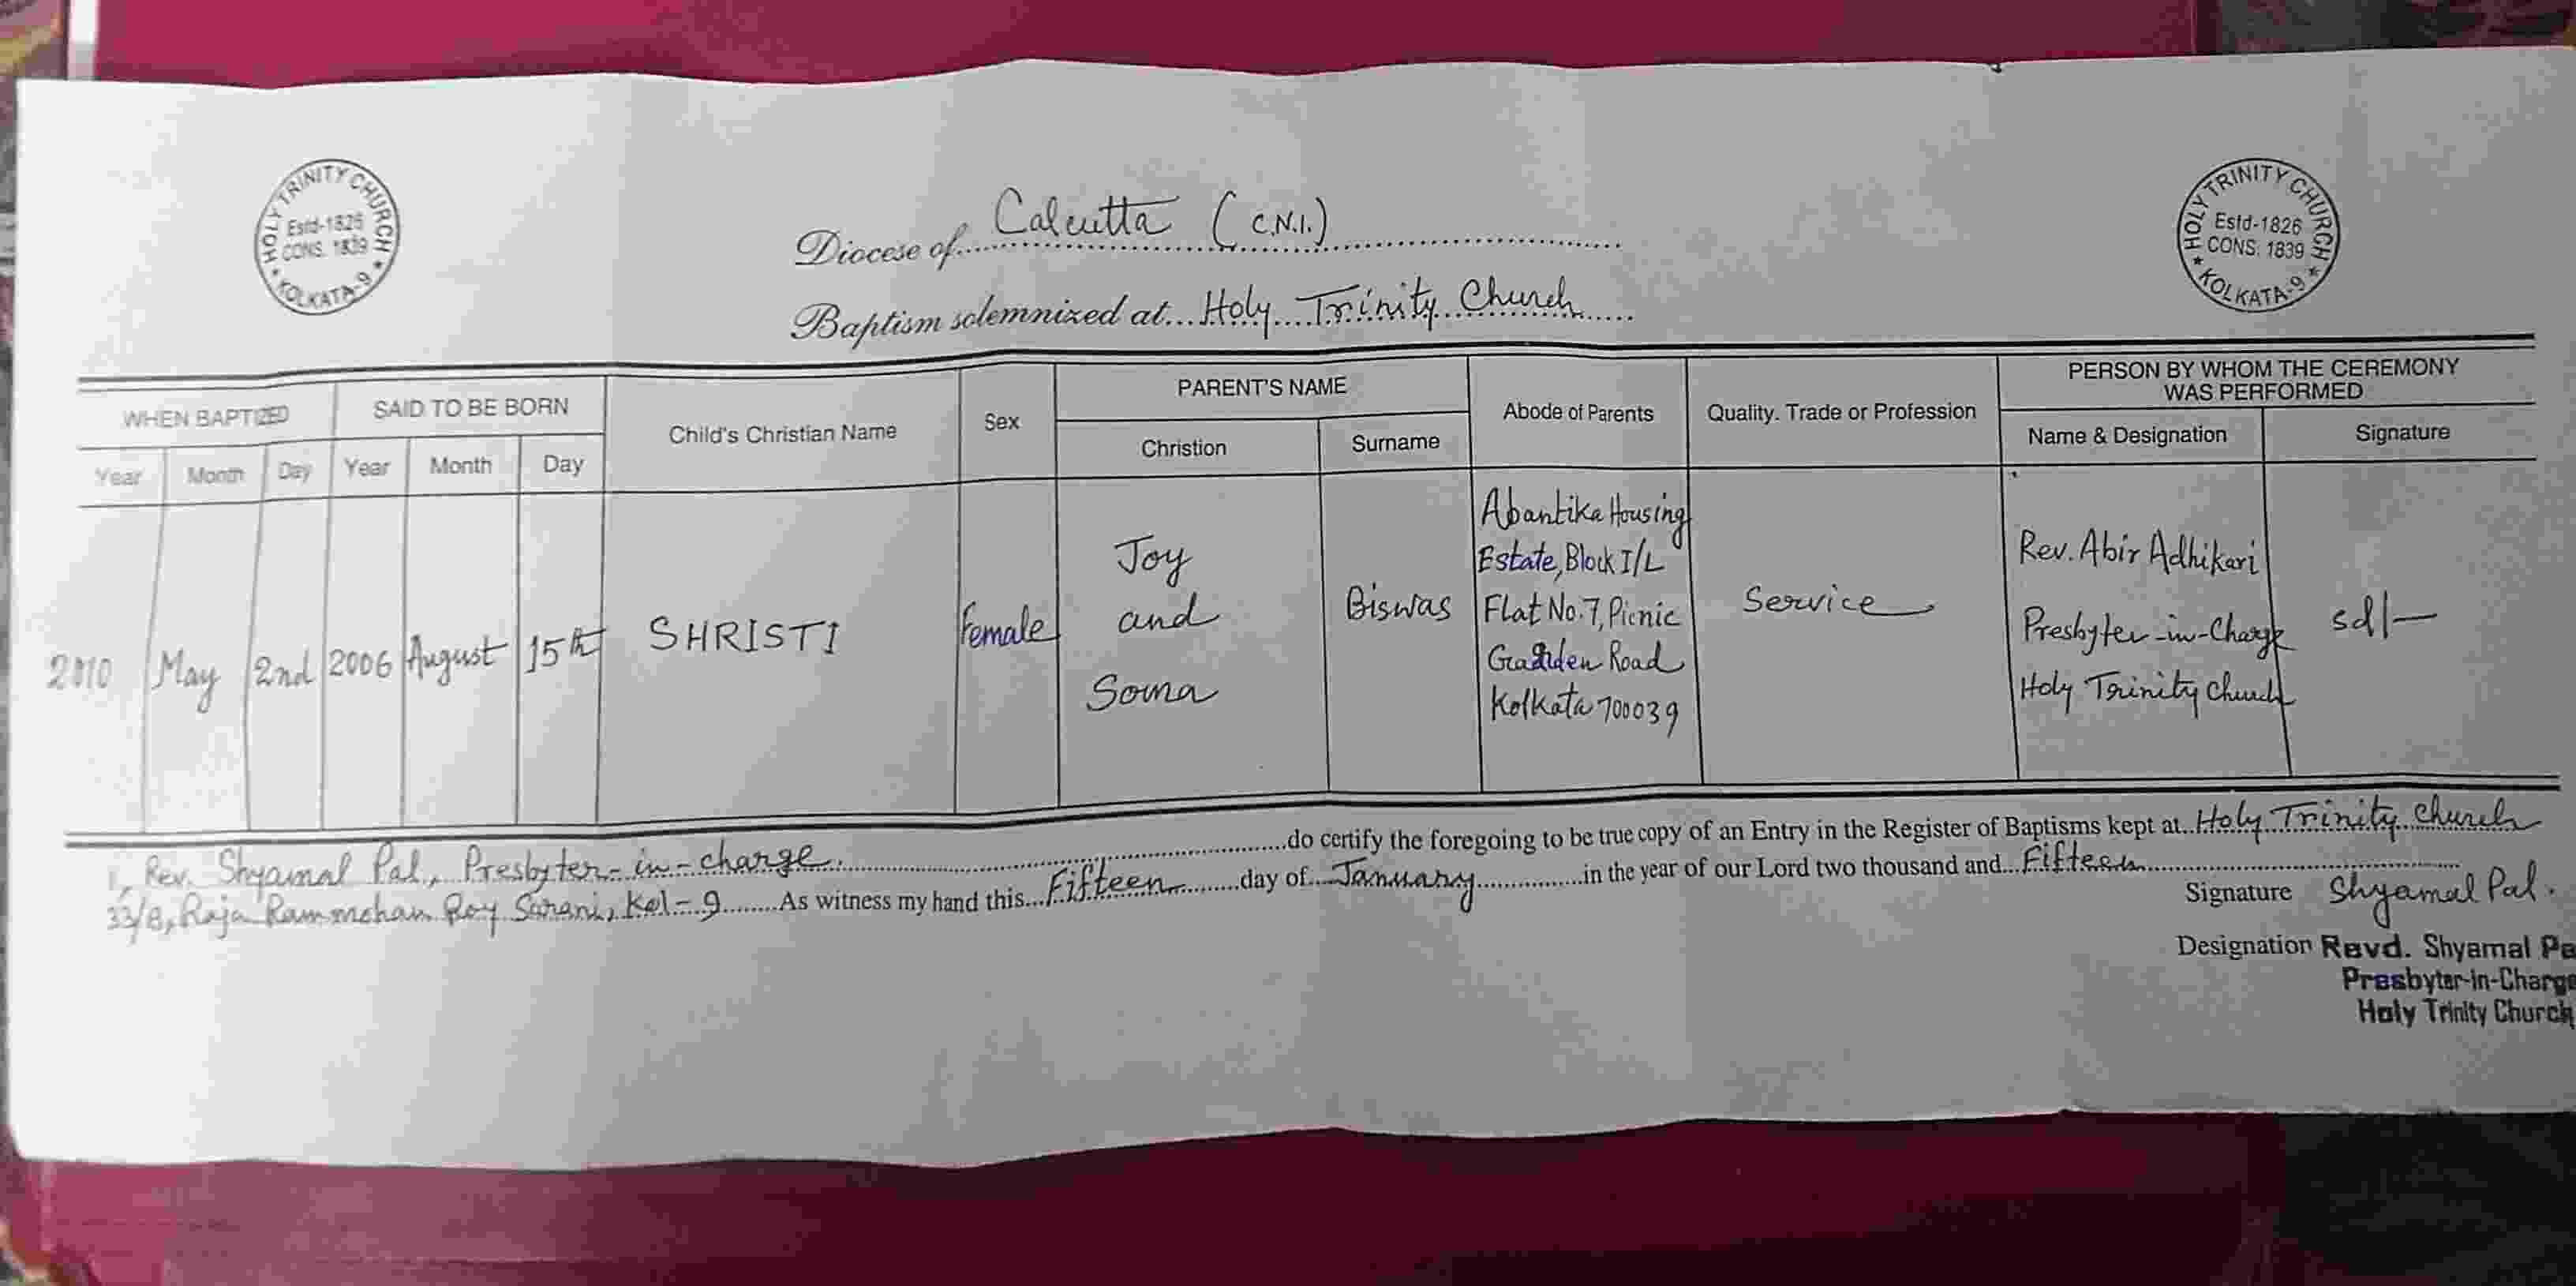 HOLY TRINITY CHURCH
Estd-1826
CONS. 1839
* KOLKATA-9 *
HOLY TRINITY CHURCH
Estd-1826
CONS. 1839
* KOLKATA-9 *
Diocese of Calcutta (C.N.I.)
Baptism solemnized at Holy Trinity Church
WHEN BAPTIZED
SAID TO BE BORN
Child's Christian Name
Sex
PARENT'S NAME
Abode of Parents
Quality. Trade or Profession
PERSON BY WHOM THE CEREMONY
WAS PERFORMED
Year Month Day Year Month Day
Christion Surname
Name & Designation Signature
2010 May 2nd 2006 August 15th
SHRISTI
Female
Joy
and
Soma
Biswas
Abantika Housing
Estate, Block I/L
Flat No. 7, Picnic
Garden Road
Kolkata 700039
Service
Rev. Abir Adhikari
Presbyter-in-Charge
Holy Trinity Church
sd/-
I, Rev. Shyamal Pal, Presbyter-in-charge do certify the foregoing to be true copy of an Entry in the Register of Baptisms kept at Holy Trinity Church
33/B, Raja Rammohan Roy Sarani, Kol-9 As witness my hand this Fifteen day of January in the year of our Lord two thousand and Fifteen
Signature Shyamal Pal.
Designation Revd. Shyamal Pa
Presbyter-in-Charge
Holy Trinity Church